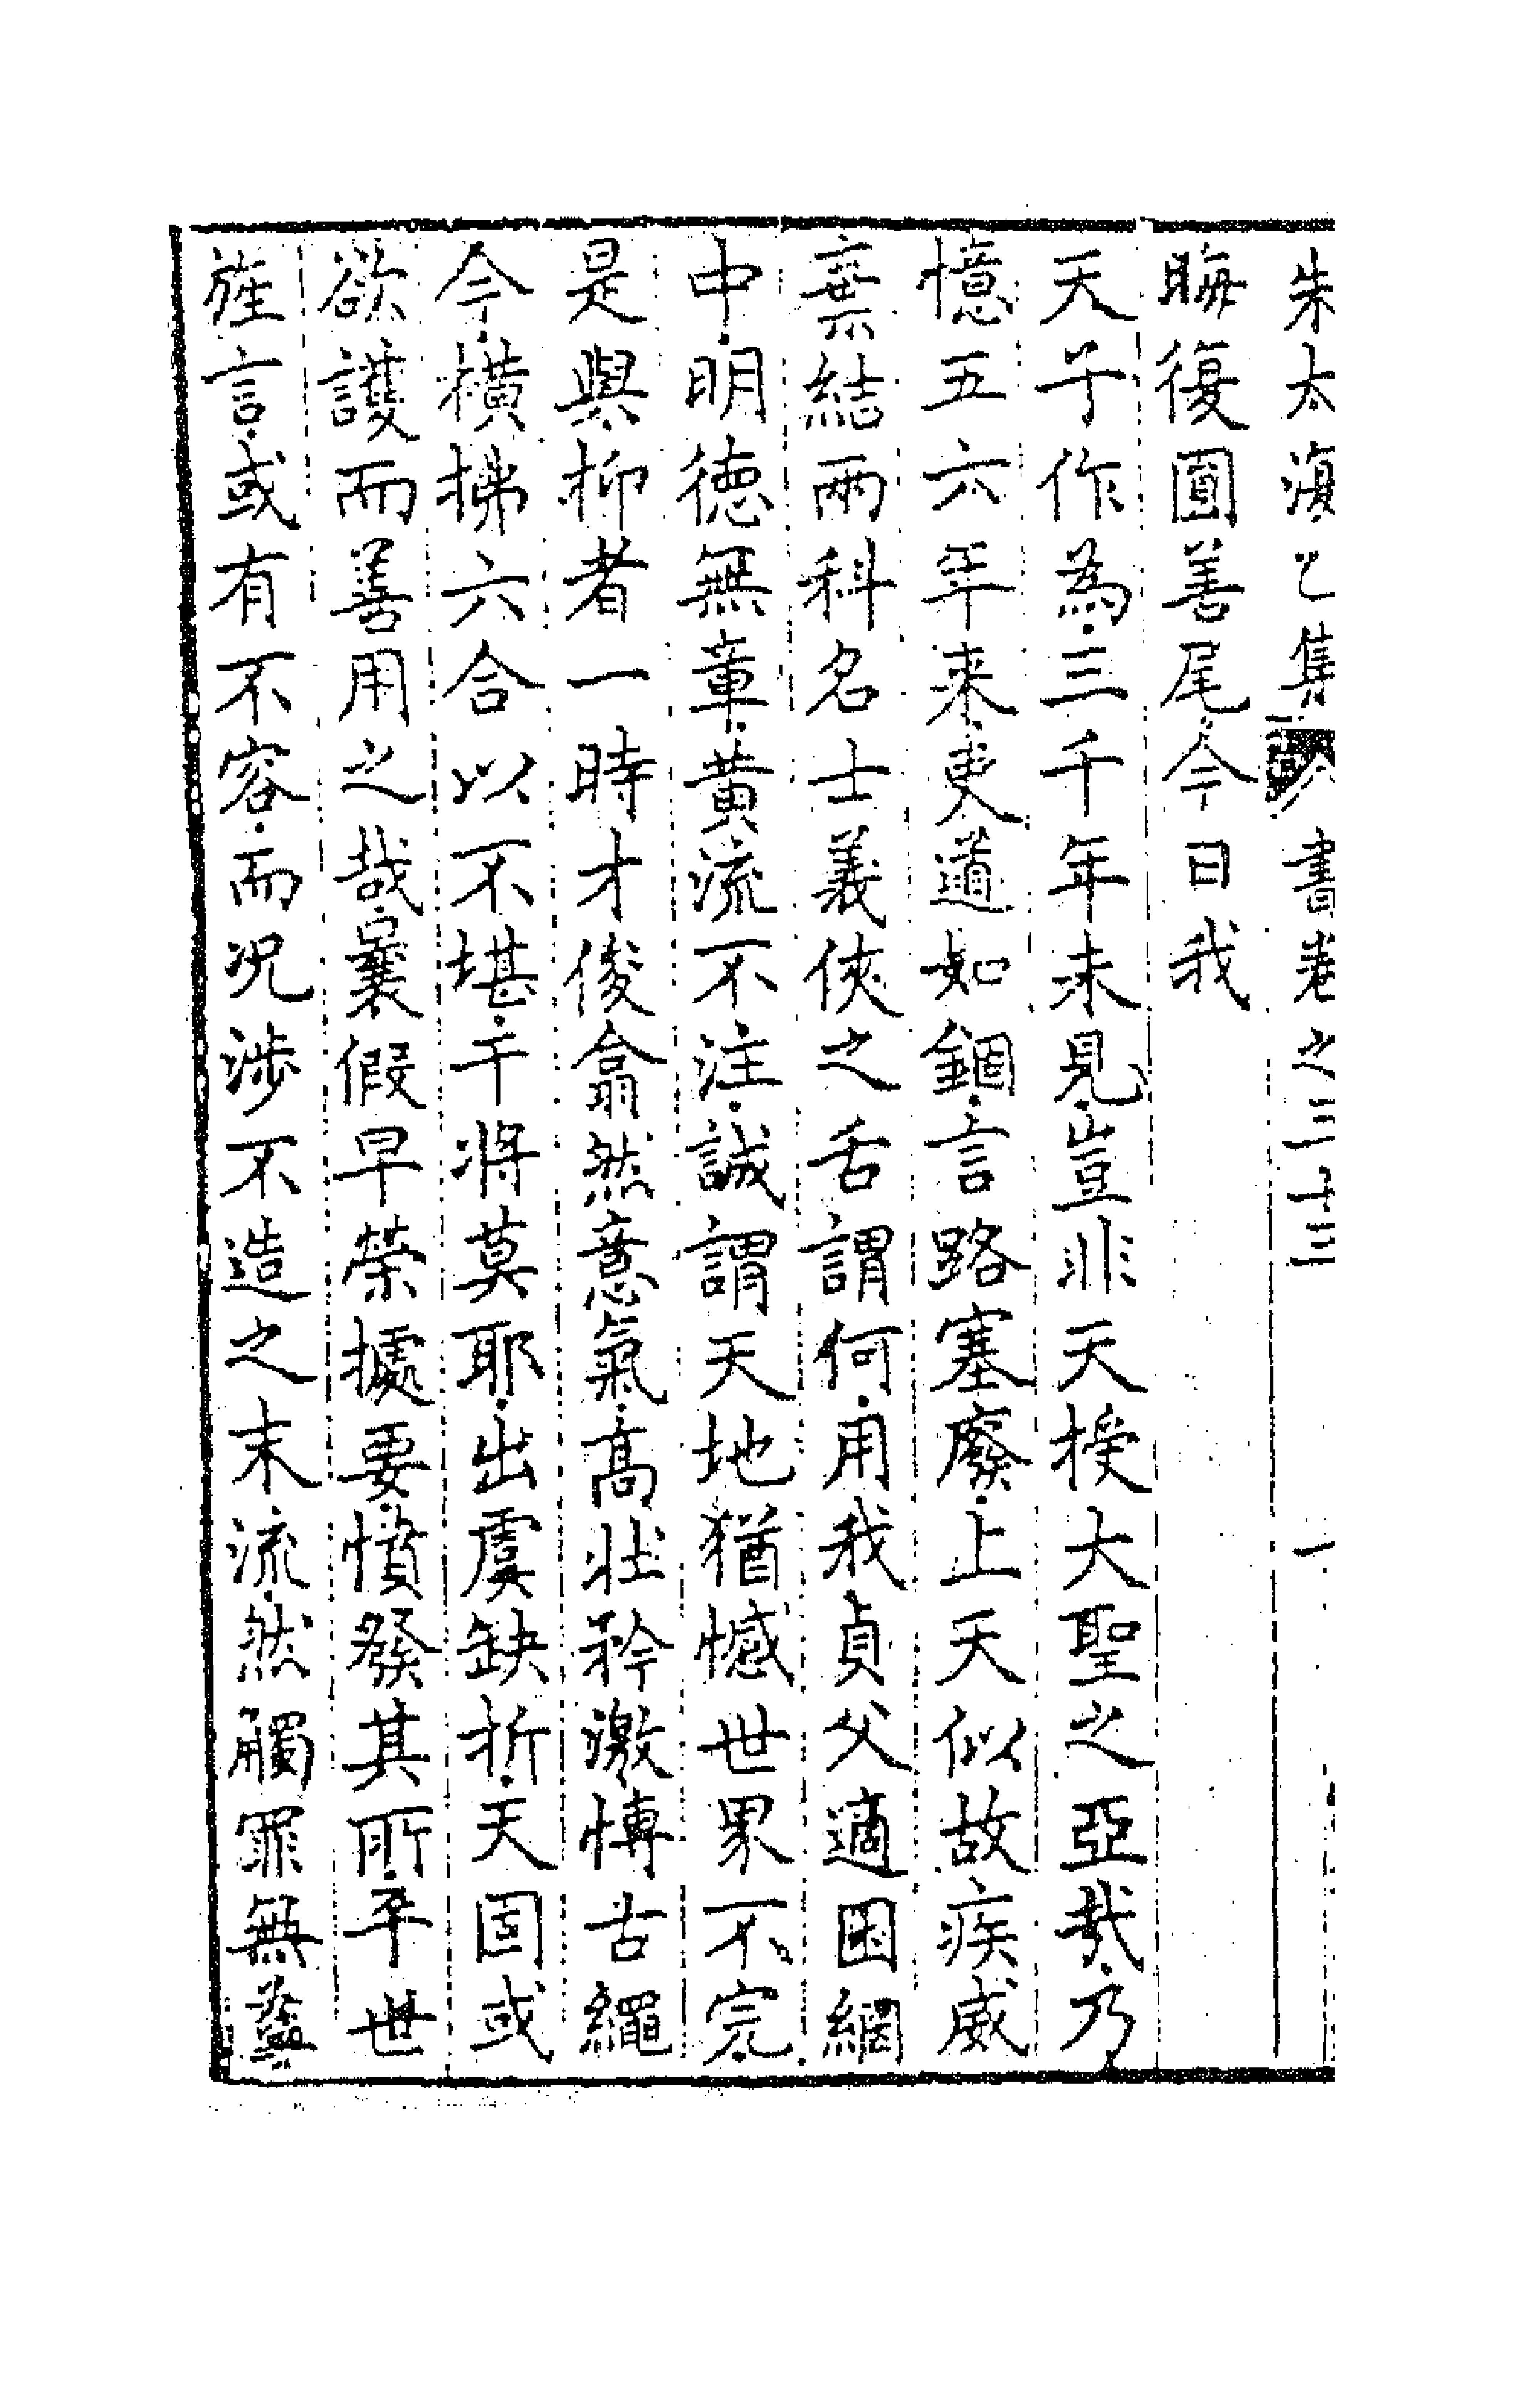 朱太復乙集 書卷之三十三 一
晦復圓善尾今日我
天子作為三千年未見豈非天授大聖之亞哉乃
憶五六年来吏道如錮言路塞廢上天似故疾威
棄結兩科名士義俠之舌謂何用我貞父適困網
中明徳無章黄流不注誠謂天地猶憾世界不完
是與抑者一時才俊翕然意氣高壯矜激慱古繩
今橫拂六合以不堪干將莫耶出虞缺折天固或
欲護而善用之哉曩假早榮據要憤發其所乎世
旌言或有不容而况涉不造之末流然觸罪無